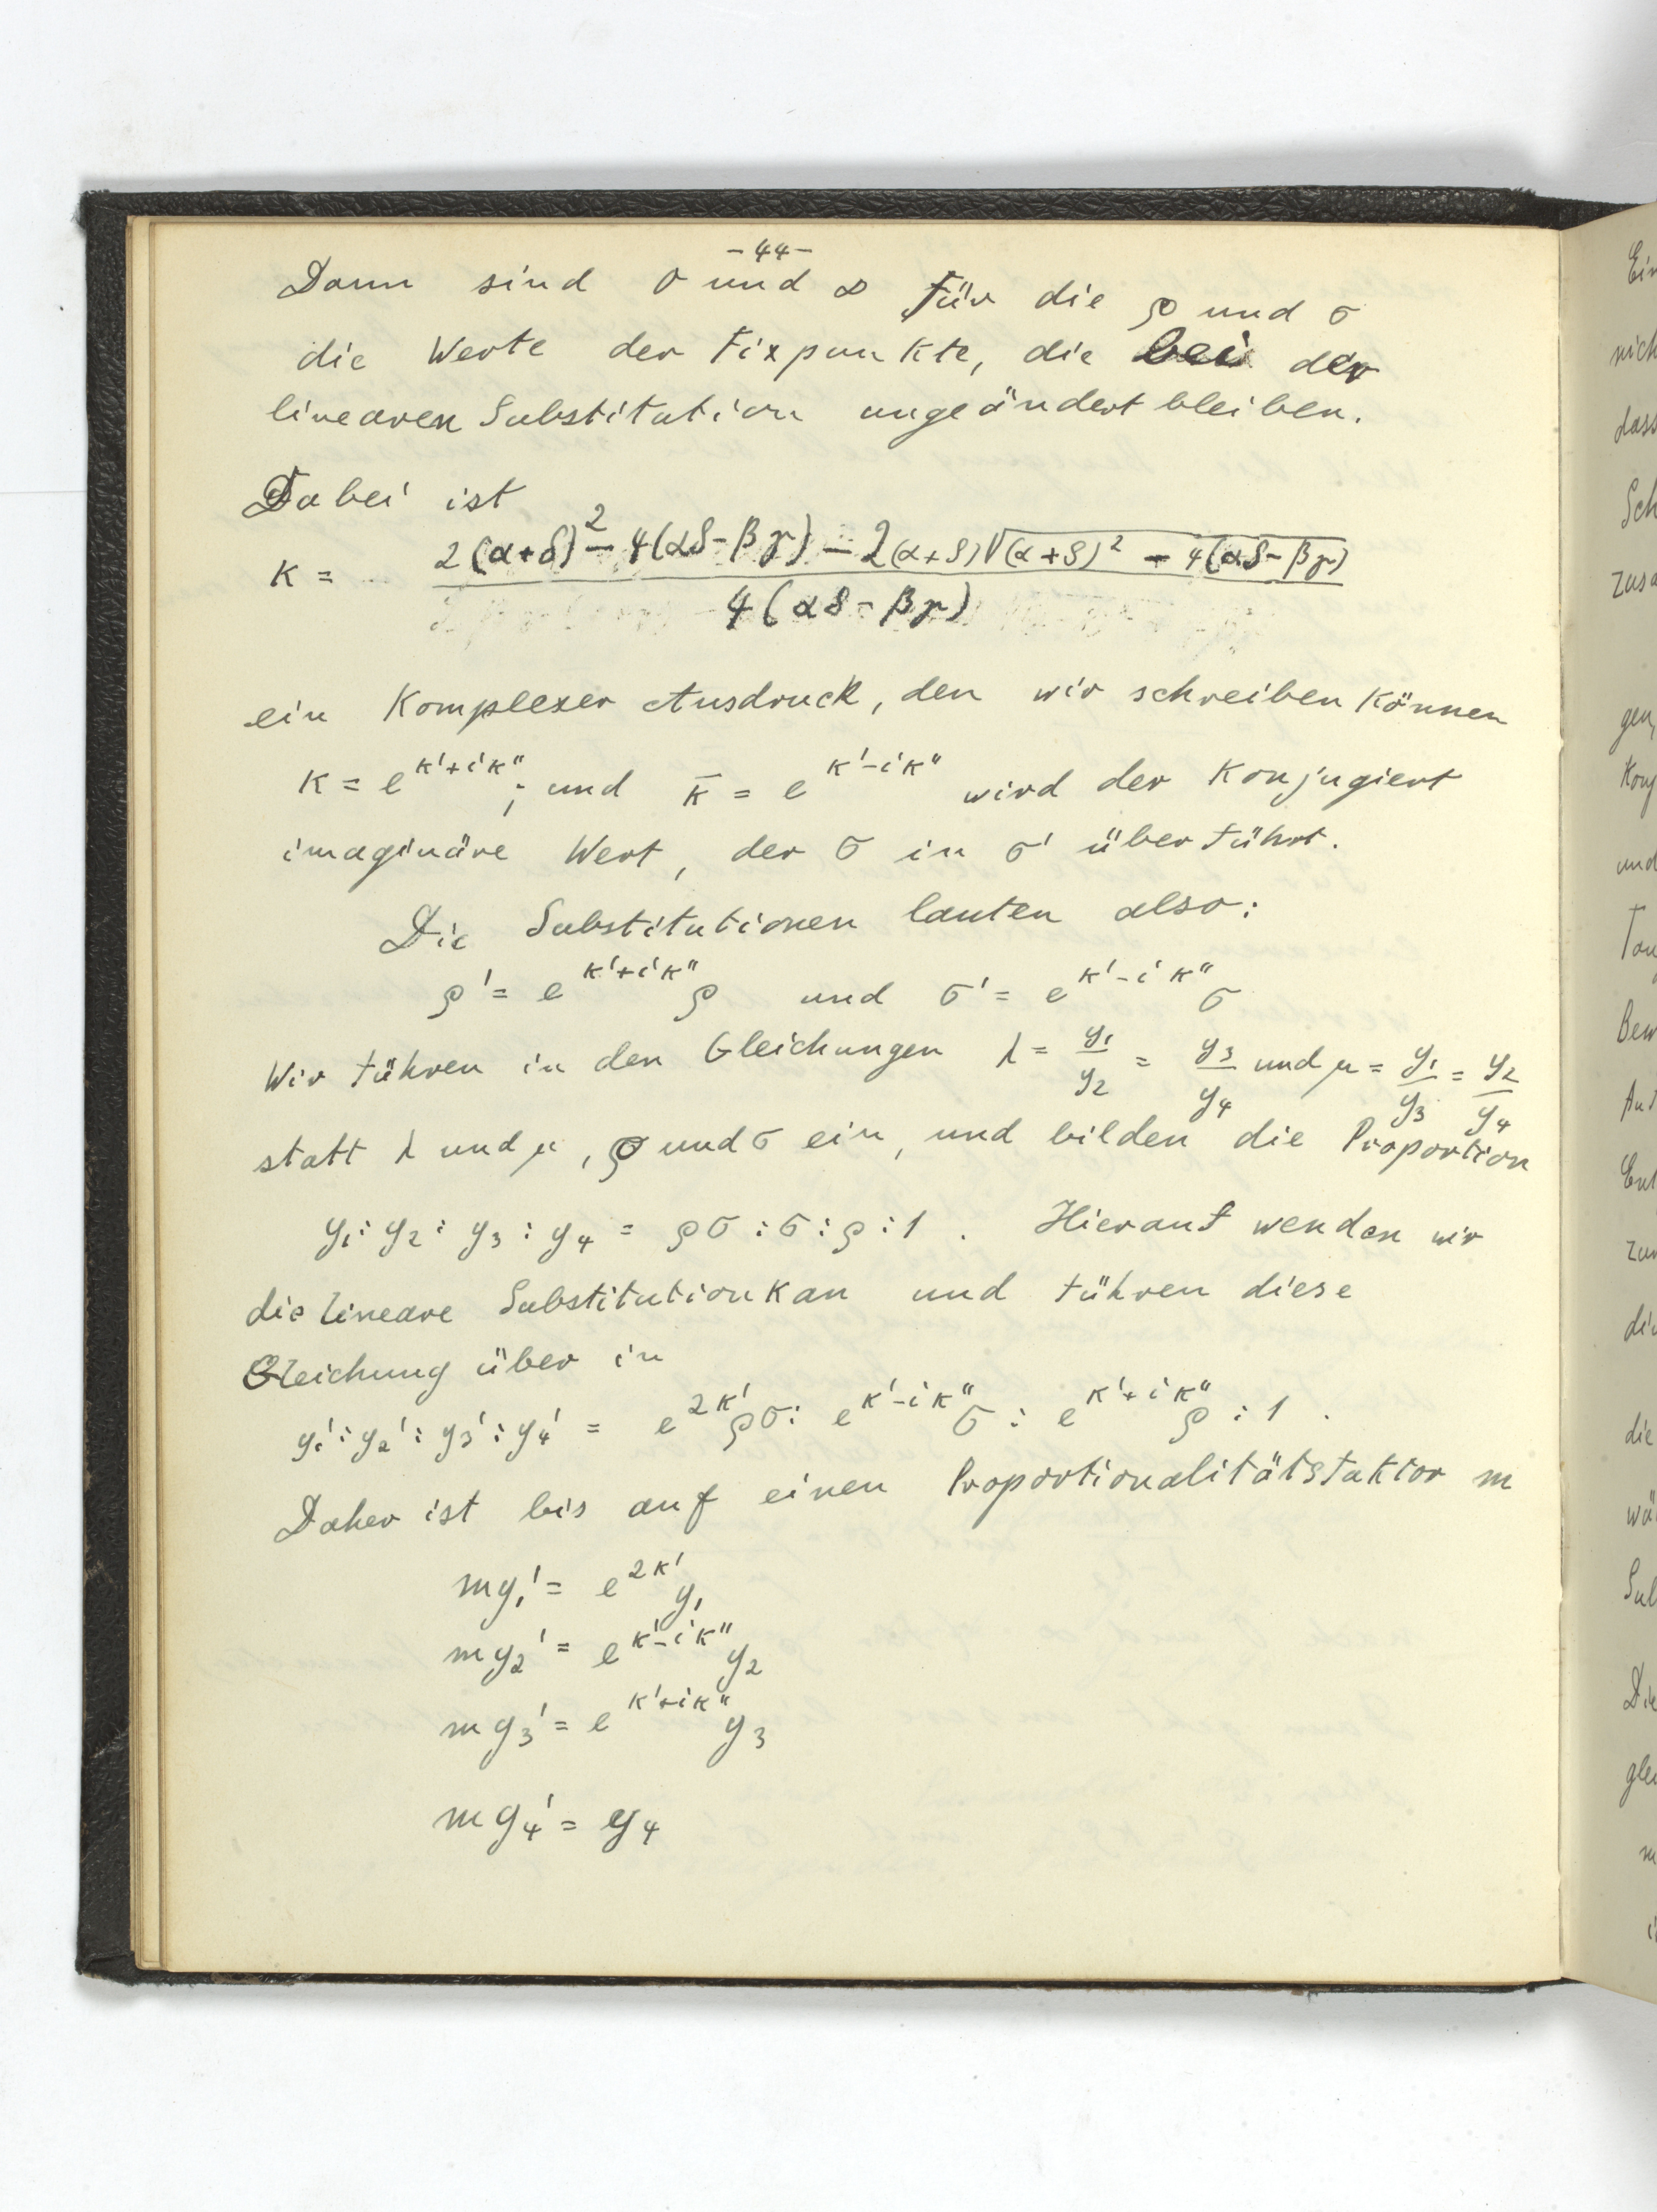 -44-
Dann sind 0 und ∞ für die ρ und σ
die Werte der Fixpunkte, die bei der
linearen Substitution ungeändert bleiben.
Dabei ist
K = (2(α+δ)² - 4(αδ-βγ) - 2(α+δ)√((α+δ)² - 4(αδ-βγ))) / (4(αδ-βγ))
ein Komplexer Ausdruck, den wir schreiben können
K = e^{K'+iK''}; und K̄ = e^{K'-iK''} wird der Konjugiert
imaginäre Wert, der σ in σ' überführt.
Die Substitutionen lauten also:
ρ' = e^{K'+iK''} ρ und σ' = e^{K'-iK''} σ
Wir führen in den Gleichungen λ = y₁/y₂ = y₃/y₄ und μ = y₁/y₃ = y₂/y₄
statt λ und μ, ρ und σ ein, und bilden die Proportion
y₁ : y₂ : y₃ : y₄ = ρσ : σ : ρ : 1. Hierauf wenden wir
die lineare Substitution K an und führen diese
Gleichung über in
y₁' : y₂' : y₃' : y₄' = e^{2K'} ρσ : e^{K'-iK''} σ : e^{K'+iK''} ρ : 1.
Daher ist bis auf einen Proportionalitätsfaktor m
my₁' = e^{2K'} y₁
my₂' = e^{K'-iK''} y₂
my₃' = e^{K'+iK''} y₃
my₄' = y₄